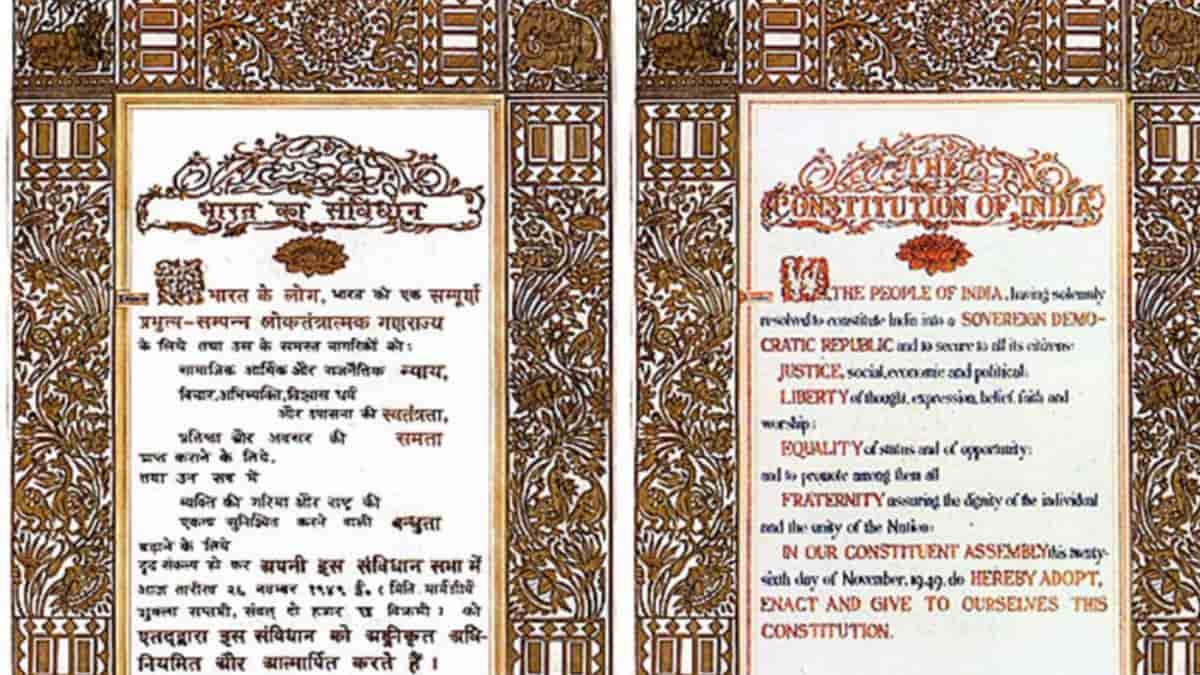 भारत का संविधान
भारत के लोग, भारत को एक सम्पूर्ण
प्रभुत्व-सम्पन्न लोकतंत्रात्मक गणराज्य
के लिये तथा उस के समस्त नागरिकों को:
सामाजिक आर्थिक और राजनैतिक न्याय,
विचार, अभिव्यक्ति, विश्वास धर्म
और उपासना की स्वतंत्रता,
प्रतिष्ठा और अवसर की समता
प्राप्त कराने के लिये,
तथा उन सब में
व्यक्ति की गरिमा और राष्ट्र की
एकता सुनिश्चित करने वाली बन्धुता
बढ़ाने के लिये
दृढ़ संकल्प हो कर अपनी इस संविधान सभा में
आज तारीख २६ नवम्बर १९४९ ई. (मिति मार्गशीर्ष
शुक्ला सप्तमी, संवत् दो हजार छ विक्रमी) को
एतद्द्वारा इस संविधान को अङ्गीकृत अधि-
नियमित और आत्मार्पित करते हैं।
THE
CONSTITUTION OF INDIA
WE, THE PEOPLE OF INDIA, having solemnly
resolved to constitute India into a SOVEREIGN DEMO-
CRATIC REPUBLIC and to secure to all its citizens:
JUSTICE, social, economic and political;
LIBERTY of thought, expression, belief, faith and
worship;
EQUALITY of status and of opportunity;
and to promote among them all
FRATERNITY assuring the dignity of the individual
and the unity of the Nation;
IN OUR CONSTITUENT ASSEMBLY this twenty-
sixth day of November, 1949, do HEREBY ADOPT,
ENACT AND GIVE TO OURSELVES THIS
CONSTITUTION.